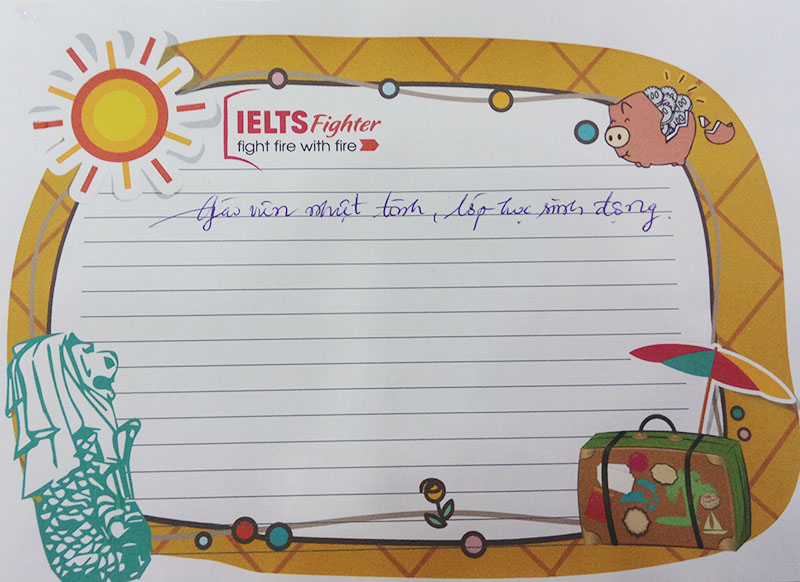 IELTS Fighter
fight fire with fire
Giáo viên nhiệt tình, lớp học sinh động.